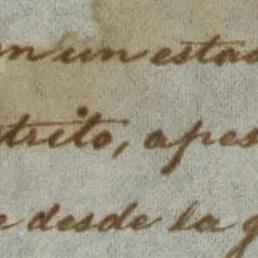 en un estad
trito, apes
e desde la g